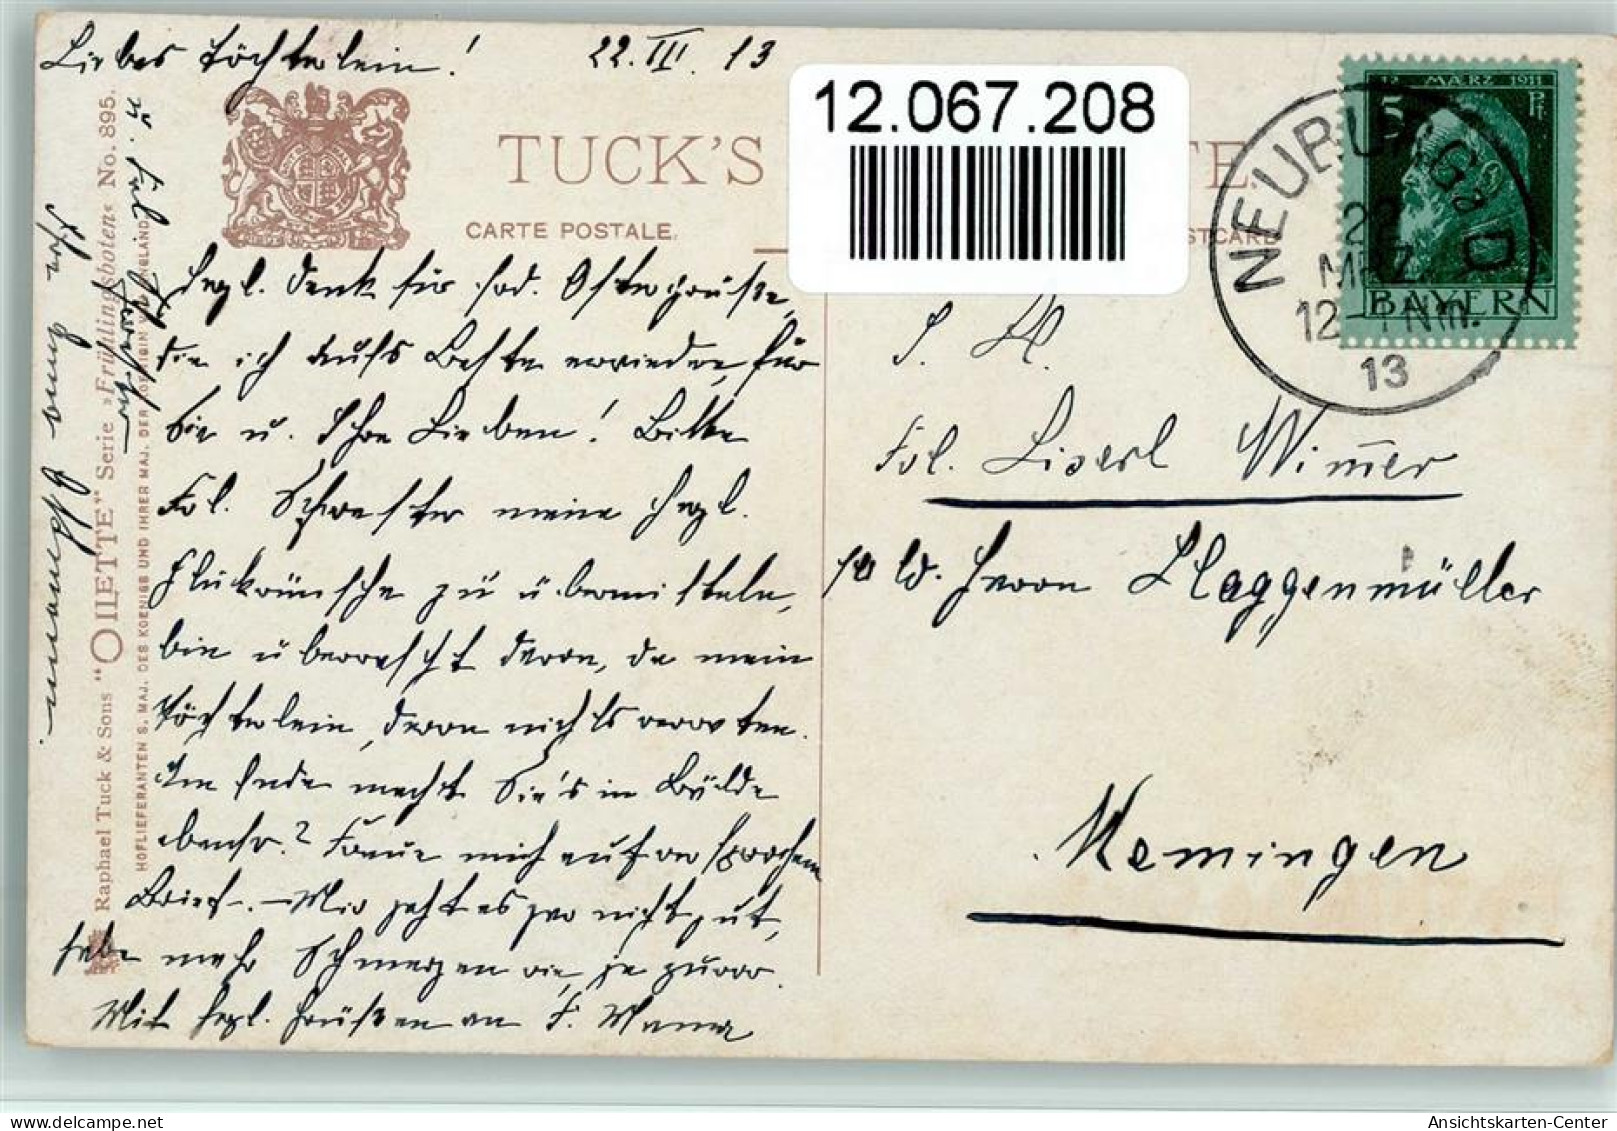 Liebes Töchterlein!
22. III. 13
12.067.208
TUCK'S
CARTE POSTALE.
Herzl. Dank für frd. Ostergrüße,
die ich aufs Beste erwiedre, für
Sie u. Ihre Lieben! Bitte
Frl. Schwester meine herzl.
Glückwünsche zu übermitteln,
bin überrascht davon, da mein
Töchterlein, davon nichts verraten.
Am Ende macht Sie's in Bälde
ebenso? Freue mich auf versprochenen
Brief. – Mir geht es gar nicht gut,
habe mehr Schmerzen wie je zuvor.
Mit herzl. Grüßen an F. Mama
u. Frl. Schwester
Ihr
Raphael Tuck & Sons "OILETTE" Serie »Frühlingsboten« No. 895.
HOFLIEFERANTEN S. MAJ. DES KOENIGS UND IHRER MAJ. DER KOENIGIN ENGLAND
BAYERN
12. MÄRZ 1911
5 Pf
NEUBURG a D
22
MRZ
12-1 Nm.
13
S. H.
Frl. Liserl Wimmer
Herrn Haggenmüller
Memmingen
Ansichtskarten-Center